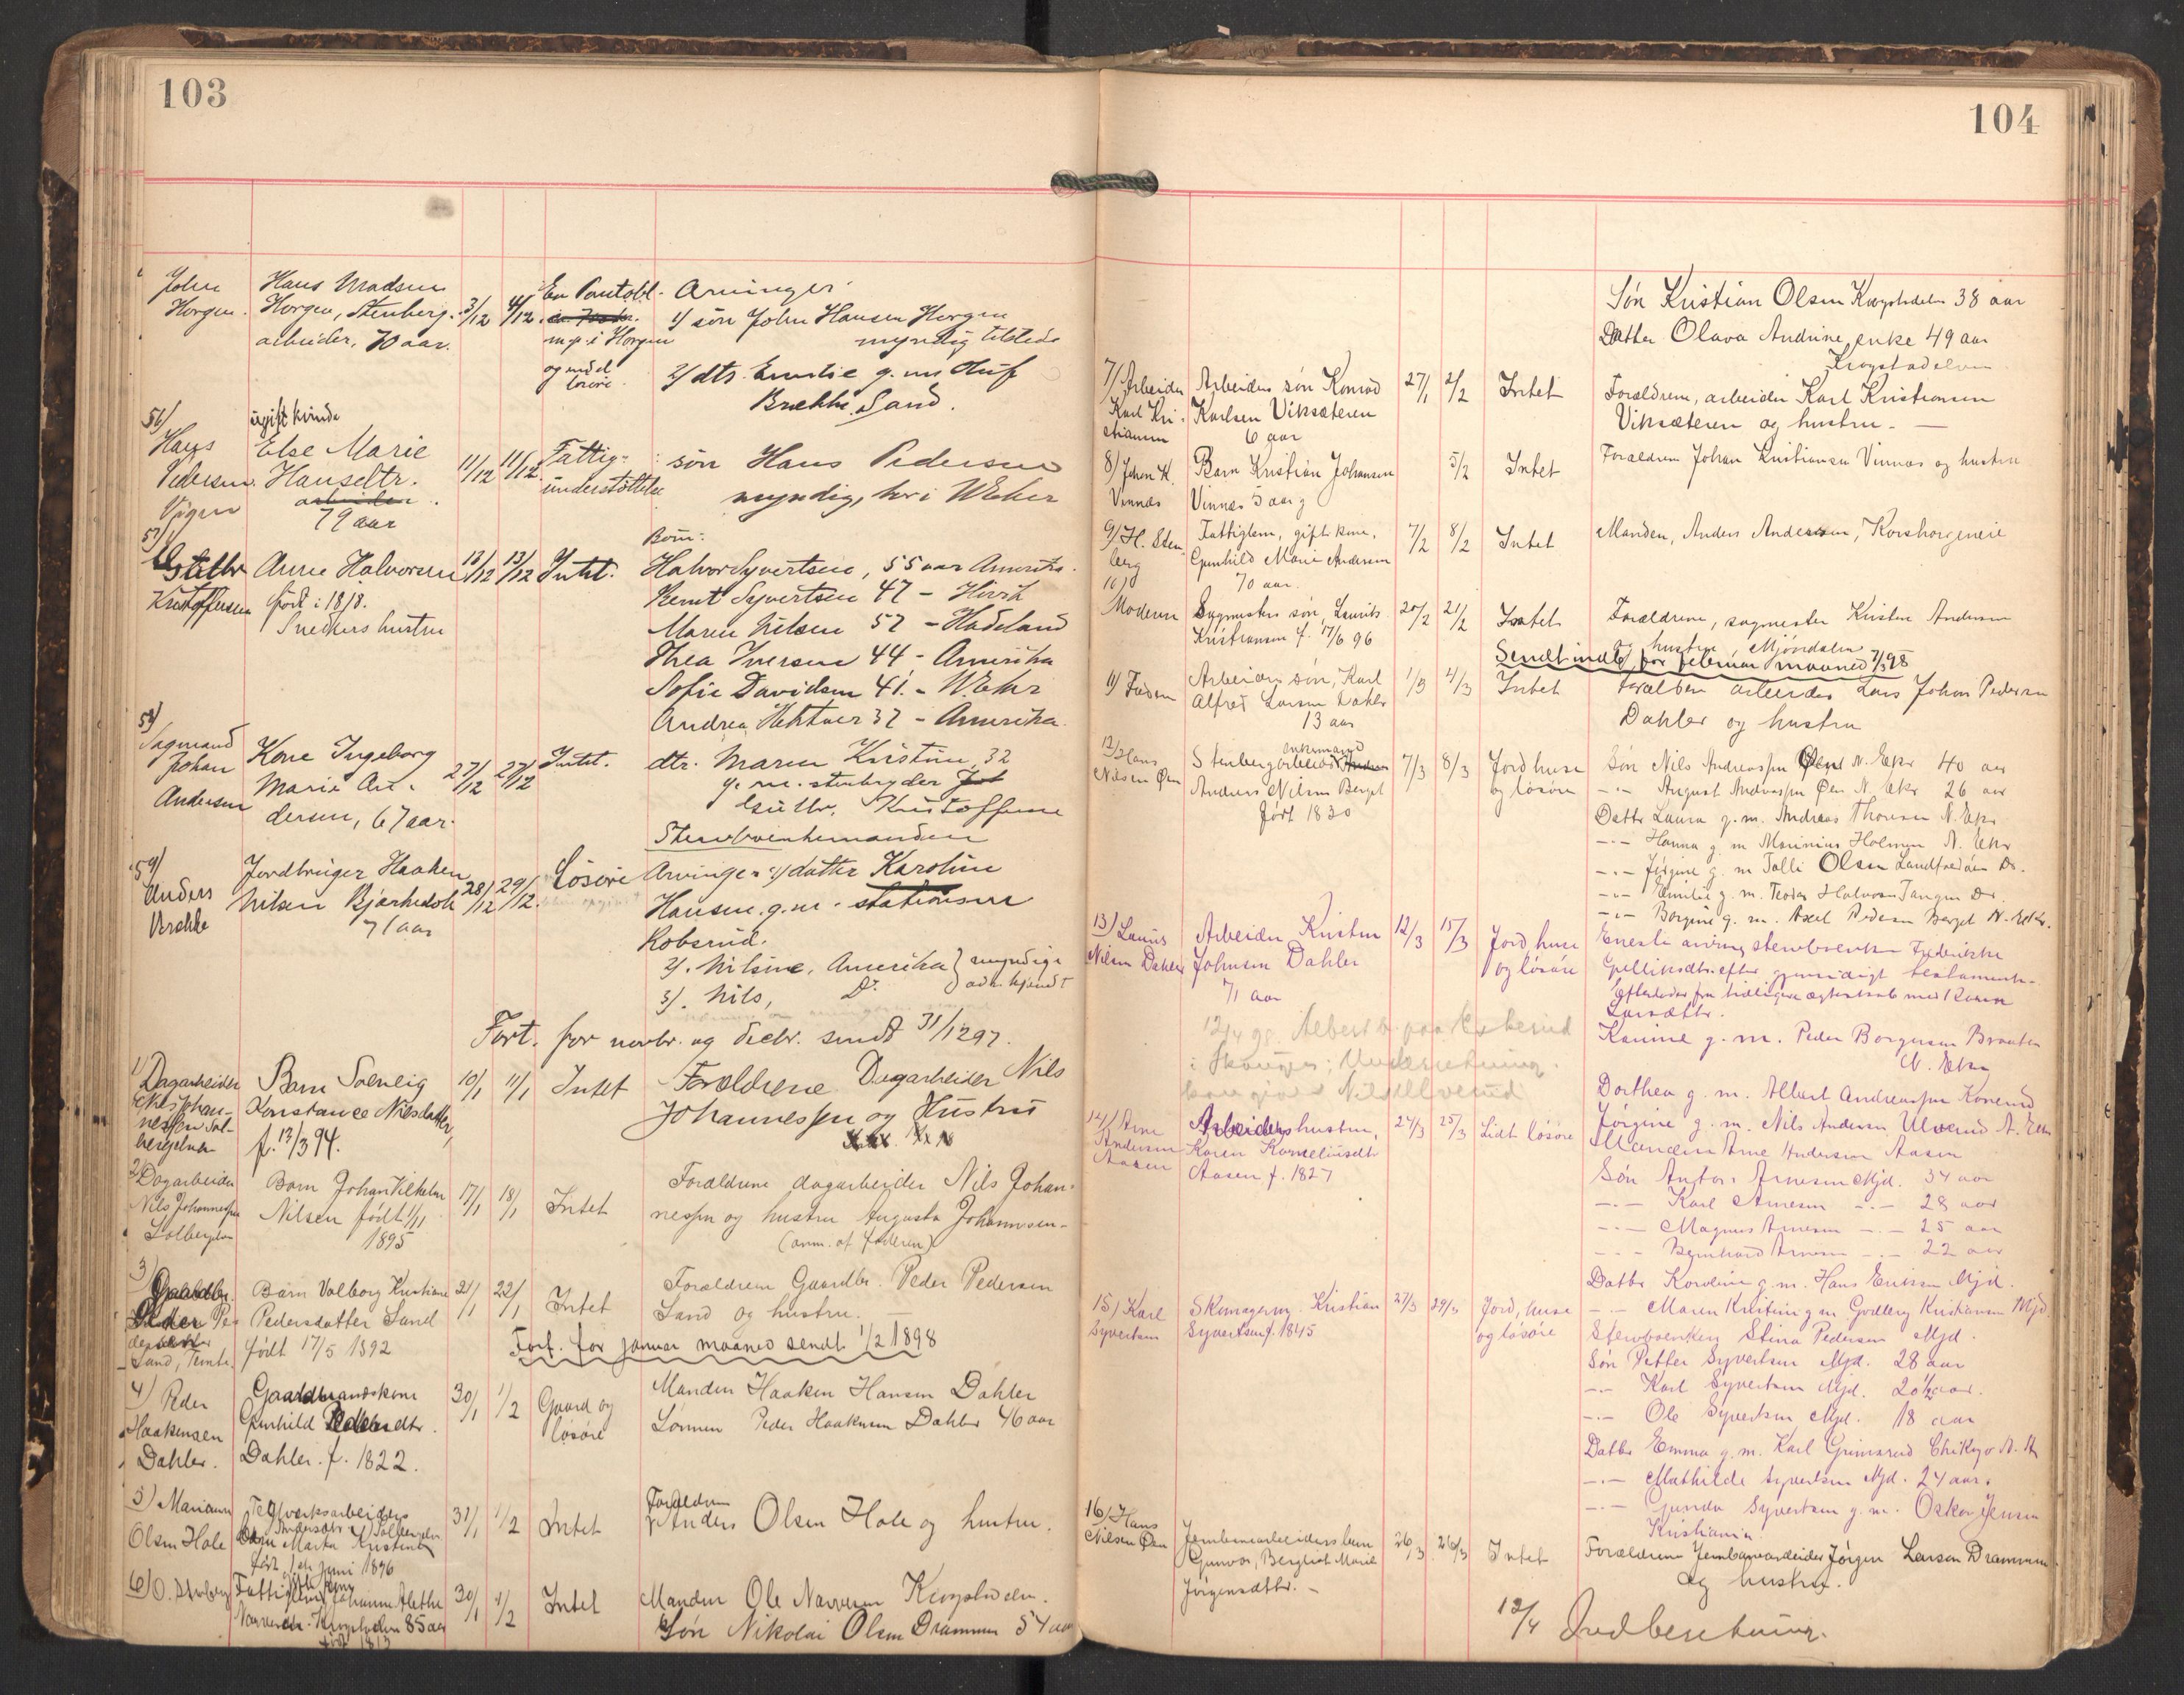 103
John
Horgen.
Hans Madsen
Horgen, Stenberg.
arbeider, 70 aar.
3/12
4/12
En Pantobl.
m.p. i Horgen
og midd
losøre.
Arvinger
1/ søn John Hansen Horgen
myndig tilstede
2/ dtr. Emilie g. m. Oluf
Brekke, Sand.
56/
Hans
Pedersen
Vigen
ugift kvinde
Else Marie
Hansdtr.
arbeider
79 aar
11/12
11/12
Fattig-
understøttelse
søn Hans Pedersen
myndig, her i W Eker
57/
Gulbr
Kristoffersen
Anne Halvorsen
født i 1818.
Snedkers hustru
13/12
13/12
Intet.
Børn:
Halvor Syvertsen, 55 aar Amerika.
Bernt Syvertsen 47 –
Maren Nilsen 57 – Hadeland
Thea Iversen 44 – Amerika
Sofie Davidsen 41. – W. Eker
Andrea 37 – Amerika.
58/
Sagmand
Johan
Andersen
Kone Ingeborg
Marie An-
dersen, 67 aar.
27/12
27/12
Intet.
dtr. Maren Kristine 32
g. m. stenbryder
Gulbr. Kristoffersen
Sterboenkemanden
59/
Anders
Brekke
Jordbruger Haaken
Nilsen Bjørkedok
71 aar
28/12
29/12.
Løsøre
Arvinger: 1/ datter Karoline
Hansen g. m. stationsm
Robsrud.
2/. Nilsine, Amerika } myndige
3/. Nils, Do } adr. kjendt
Fort. for novbr. og decbr. sendt 31/12 97.
1/
Dagarbeider
Nils Johan-
nessen Sol-
bergelven
Barn Solveig
Konstance Nilsdatter,
f. 13/3 94.
10/1
11/1
Intet
Forældrene Dagarbeider Nils
Johannessen og Hustru
2/ Dagarbeider
Nils Johannessen
Solbergelven
Barn Johan Vilhelm
Nilsen født 1/11
1895
17/1
18/1
Intet
Forældrene dagarbeider Nils Johan-
nessen og hustru Augusta Johannesen-
(anm. af faderen)
3/
Gaardbr.
Peder Pe-
dersen
Sand, Temte.
Barn Valborg Kristiane
Pedersdatter Sand
født 17/5 1892
21/1
22/1
Intet
Forældrene Gaardbr. Peder Pedersen
Sand og hustru.
Fort. for januar maaned sendt 1/2 1898
4/ Peder
Haakensen
Dahler.
Gaardmandskone
Gunhild Pedersdtr.
Dahler. f. 1822.
30/1
1/2
Gaard og
løsøre
Manden Haaken Hansen Dahler
Sønnen Peder Haakensen Dahler 46 aar
5/ Mariann
Olsen Hole
Teglverksarbeiders
Barn Marta Kristine
født 1ste juni 1896
31/1
1/2
Intet
Forældrene
Anders Olsen Hole og hustru.
6/ O. Stenberg
Fattiglem Johanne Alethe
Narverud. Krogstadelven 85 aar
født 1813
30/1
1/2
Intet
Manden Ole Narveren Krogstadelv.
Søn Nikolai Olsen Drammen 54 aar
104
Søn Kristian Olsen Krogstadelv 38 aar
Datter Olava Andrine, enke 49 aar
Krogstadelven
7/ Arbeider
Karl Kri-
stiansen
Arbeiders søn Konrad
Karlsen Viksæteren
6 aar
27/1
2/2
Intet
Forældrene, arbeider Karl Kristiansen
Viksæteren og hustru. –
8/ Johan K.
Vinnæs
Barn Kristian Johansen
Vinnæs 5 aar g
5/2
Intet
Forældrene Johan Kristiansen Vinnæs og hustru
9/ H. Sten
berg
Fattiglem, gift kone,
Gunhild Marie Andersen
70 aar
7/2
8/2
Intet
Manden, Anders Andersen, Korshorgeneie
10/
Moderen
Sagmesters søn, Laurits
Kristiansen f. 17/6 96
20/2
21/2
Intet
Forældrene, sagmester Kristen Andersen
og hustru, Mjøndalen
Sendt indb for februar maaned 1/3 98
11/ Faderen
Arbeiders søn, Karl
Alfred Larsen Dahler
13 aar
1/3
4/3
Intet
Forældrene arbeider Lars Johan Pedersen
Dahler og hustru
12/ Hans
Nilsen Øen
enkemand
Stenbergarbeider
Andreas Nilsen Berget
født 1830
7/3
8/3
Jord huse
og løsøre
Søn Nils Andreassen Øen N. Eker 40 aar
–"– August Andreassen Øen N. Eker 26 aar
Datter Laura g.m. Andreas Thoresen N. Eker
–"– Hanna g m Marinius Holmen N. Eker
–"– Jørgine g. m Tolle Olsen Landfaldøen Dr.
–"– Emilie g. m. Teodor Halvorsen Tangen Dr.
–"– Borgine g. m. Axel Pedersen Berget N. Eker.
13/ Lauris
Nilsen Dahler
Arbeider Kristen
Johnsen Dahler
71 aar
12/3
15/3
Jord, huse
og løsøre
Eneste arving sterboenken Frederikke
efter gjensidigt testamente.
Efterlader fra tidligere ægteskab med Karen
Larsdtr.
Karine g. m. Peder Borgersen Braaten
N. Eker
12/4 98.
Dorthea g. m. Albert Andreassen Konerud
Jørgine g. m. Nils Andersen Ulverud N. Eker
14/ Arne
Andersen
Aasen
Arbeiders hustru,
Karen Korneliusdtr
Aasen f. 1827
24/3
25/3
Lidt løsøre
Manden Arne Andersen Aasen
Søn Anton Arnesen Mjd. 34 aar
–"– Karl Arnesen –"– 28 aar
–"– Magnus Arnesen –"– 25 aar
–"– Bernhard Arnesen –"– 22 aar
Datter Karoline g.m. Hans Eriksen Mjd.
–"– Maren Kristine g m. Godberg Kristiansen Mjd
15/ Karl
Syvertsen
Skomagerm. Kristian
Syvertsen f. 1845
27/3
29/3
Jord, huse
og løsøre
Sterboenken Stina Pedersen Mjd.
Søn Petter Syvertsen Mjd. 28 aar
–"– Karl Syvertsen Mjd. 20½ aar.
–"– Ole Syvertsen Mjd. 18 aar
Datter Emma g. m. Karl Grimsrud Chikago N. A
–"– Mathilde Syvertsen Mjd. 24 aar.
–"– Gunda Syvertsen g. m. Oskar Jensen
Kristiania
16/ Hans
Nilsen Øen
Jernbanearbeiders barn
Gunvor, Bergliot Marie
Jørgensdtr. –
26/3
26/3
Intet
Forældrene Jernbanearbeider Jørgen Larsen Drammen
og hustru.
12/4 Indberetning.